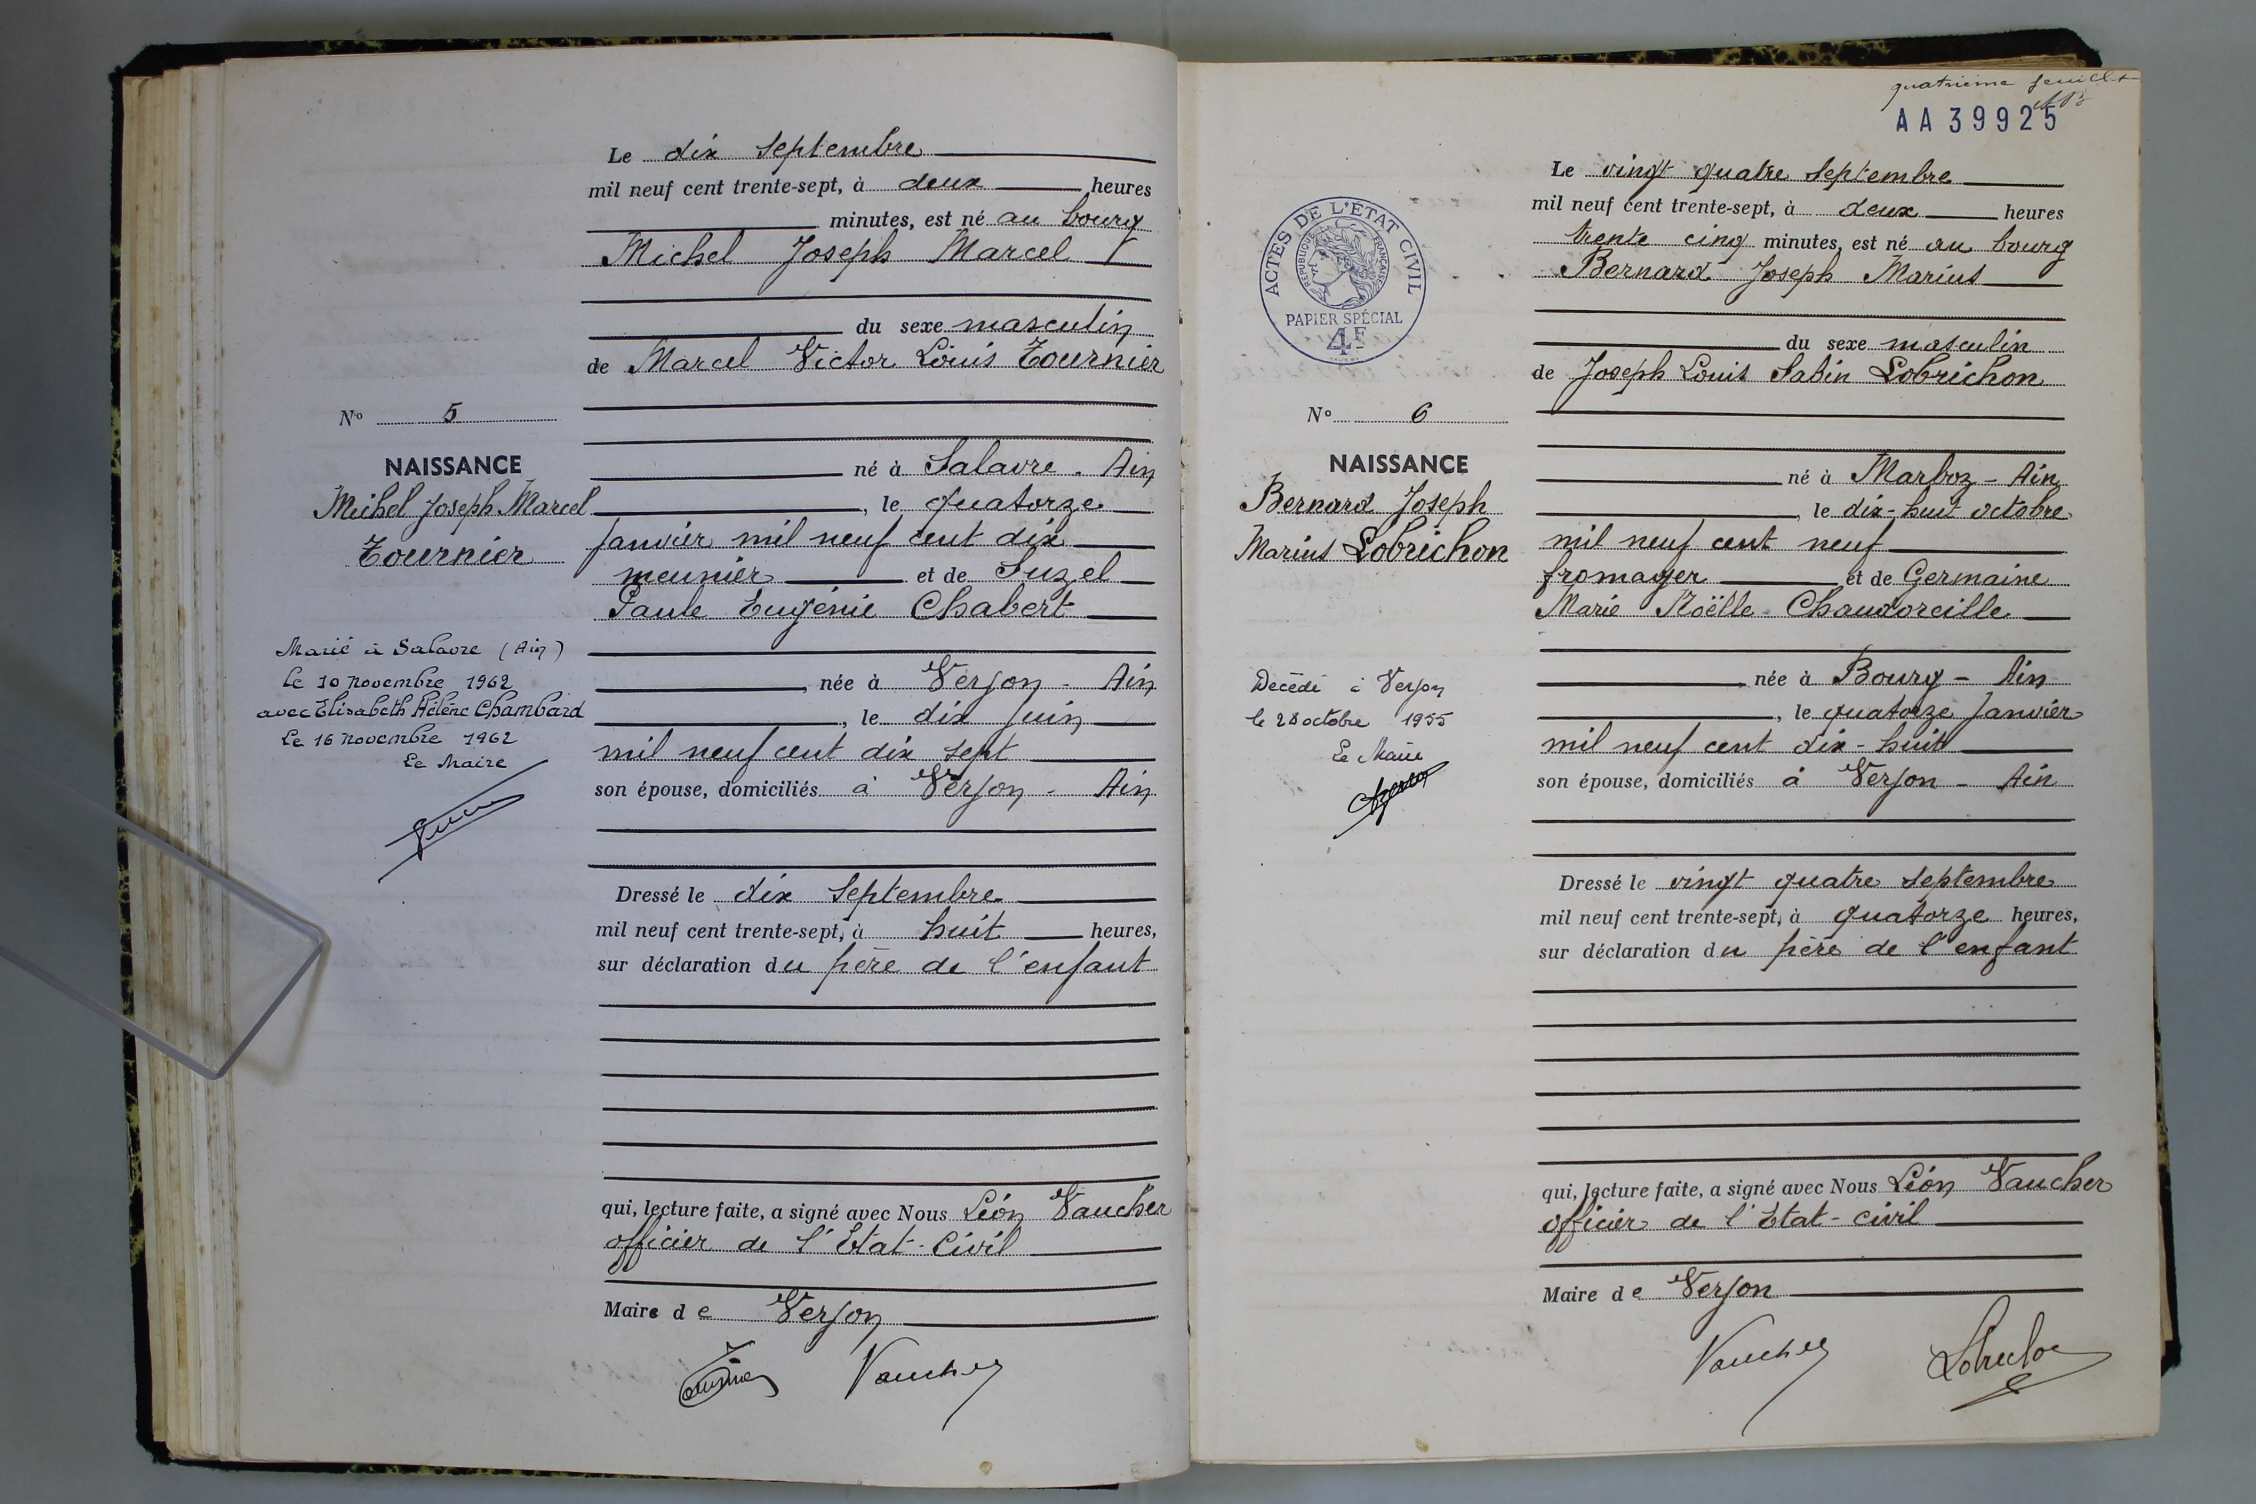 Le dix septembre
mil neuf cent trente-sept, à deux heures
minutes, est né au bourg
Michel Joseph Marcel
du sexe masculin
de Marcel Victor Louis Tournier
No 5
NAISSANCE
Michel Joseph Marcel
Tournier
né à Salavre - Ain
, le quatorze
janvier mil neuf cent dix
meunier et de Suzel
Paule Eugénie Chabert
née à Verjon - Ain
, le dix juin
mil neuf cent dix sept
son épouse, domiciliés à Verjon - Ain
Marié à Salavre (Ain)
le 10 novembre 1962
avec Elisabeth Hélène Chambard
Le 16 novembre 1962
Le Maire
Dressé le dix septembre
mil neuf cent trente-sept, à huit heures,
sur déclaration du père de l'enfant
qui, lecture faite, a signé avec Nous Léon Vaucher
officier de l'Etat-Civil
Maire de Verjon
Vaucher
quatrième feuillet
AA 39925
ACTES DE L'ETAT CIVIL
REPUBLIQUE FRANÇAISE
PAPIER SPÉCIAL
4F
Le vingt quatre septembre
mil neuf cent trente-sept, à deux heures
trente cinq minutes, est né au bourg
Bernard Joseph Marius
du sexe masculin
de Joseph Louis Sabin Lobrichon
No 6
NAISSANCE
Bernard Joseph
Marius Lobrichon
né à Marboz - Ain
, le dix-huit octobre
mil neuf cent neuf
fromager et de Germaine
Marie Noëlle Chaudoreille
née à Bourg - Ain
, le quatorze janvier
mil neuf cent dix-huit
son épouse, domiciliés à Verjon - Ain
Décédé à Verjon
le 28 octobre 1955
Le Maire
Dressé le vingt quatre septembre
mil neuf cent trente-sept, à quatorze heures,
sur déclaration du père de l'enfant
qui, lecture faite, a signé avec Nous Léon Vaucher
officier de l'Etat-civil
Maire de Verjon
Vaucher